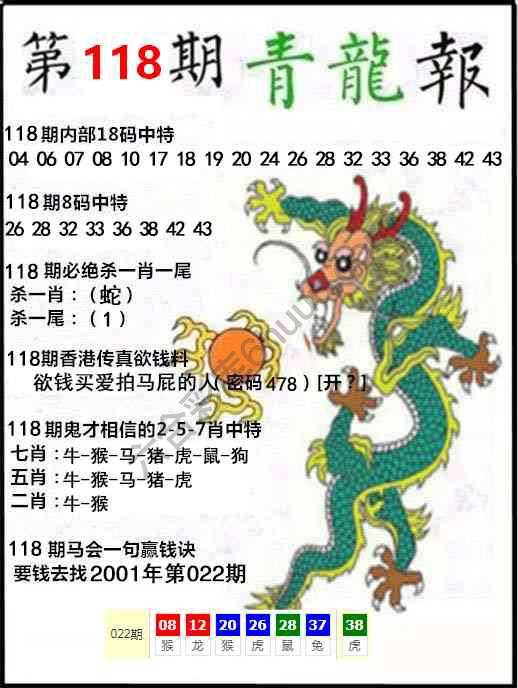 第118期青龍報
118期内部18码中特
04 06 07 08 10 17 18 19 20 24 26 28 32 33 36 38 42 43
118期8码中特
26 28 32 33 36 38 42 43
118期必绝杀一肖一尾
杀一肖：（蛇）
杀一尾：（1）
118期香港传真欲钱料
欲钱买爱拍马屁的人(密码478)[开?]
118期鬼才相信的2-5-7肖中特
七肖：牛-猴-马-猪-虎-鼠-狗
五肖：牛-猴-马-猪-虎
二肖：牛-猴
118期马会一句赢钱诀
要钱去找2001年第022期
022期 08 12 20 26 28 37 38
猴 龙 猴 虎 鼠 兔 虎